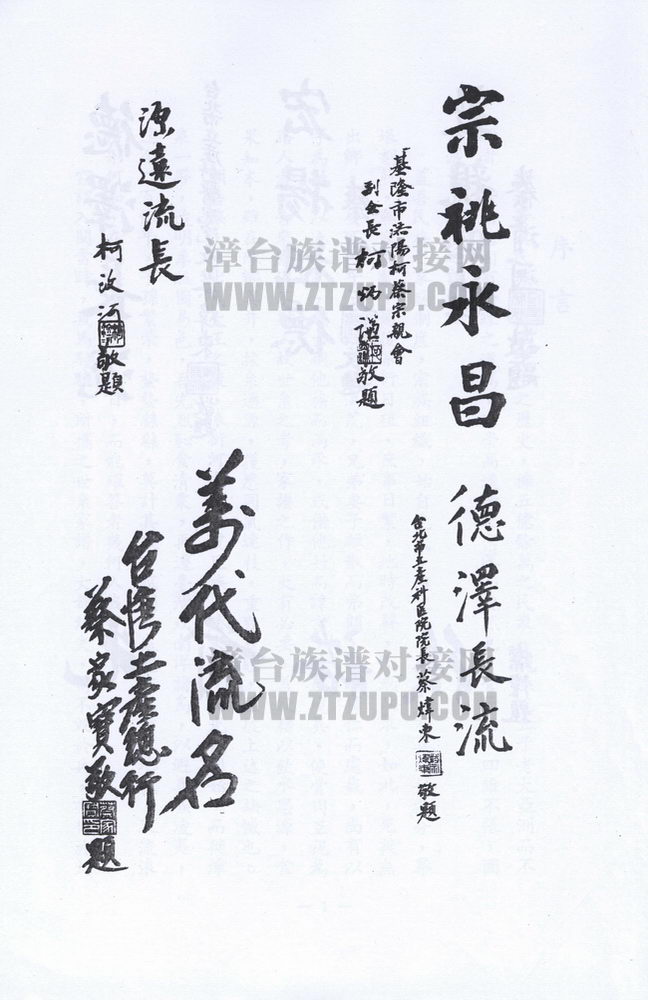 宗祧永昌
基隆市济陽柯蔡宗親會
副会長 柯 謚 敬題
源遠流長
柯汝河敬題
德澤長流
台北市土產科医院院長 蔡煒東 敬題
萬代流名
台湾土產總行
蔡家寶敬題
漳台族谱对接网
WWW.ZTZUPU.COM
漳台族谱对接网
WWW.ZTZUPU.COM